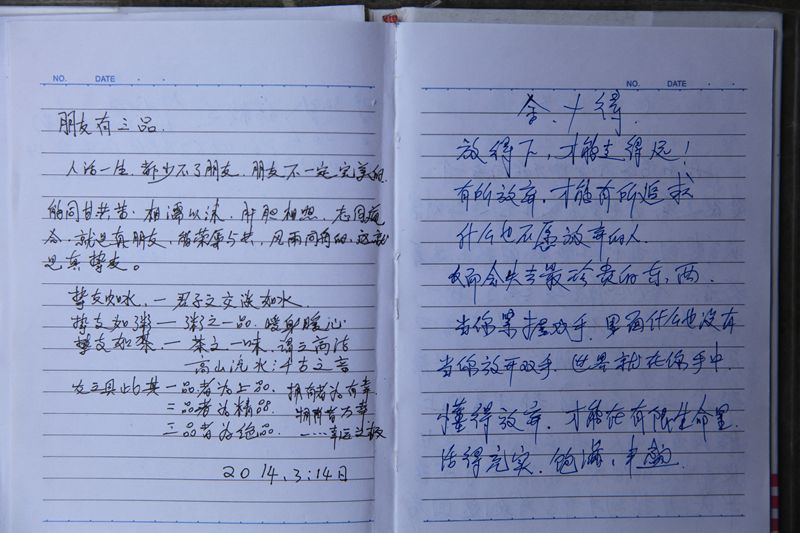 NO. DATE
朋友有三品.
人活一生,都少不了朋友,朋友不一定完美的,
能同甘共苦.相濡以沫.肝胆相想.志同道
合.就是真朋友,能荣辱与共,风雨同舟的,这就
是真挚友。
挚友如水,一君子之交淡如水.
挚友如粥一粥之一品.暖身暖心
挚友如茶一茶之一味.谓之高洁
高山流水:千古之音
友之具此其一品者为上品.拥有者为有幸.
二品者为精品.拥有者万幸
三品者为绝品.一……幸运之极
2014.3:14日
NO. DATE
舍.十得.
放得下,才能走得远!
有所放弃,才能有所追求
什么也不愿放弃的人.
反而会失去最珍贵的东西.
当你紧握双手.里面什么也没有
当你放开双手.世界就在你手中.
懂得放弃.才能在有限生命里.
活得充实.饱满、丰韵.